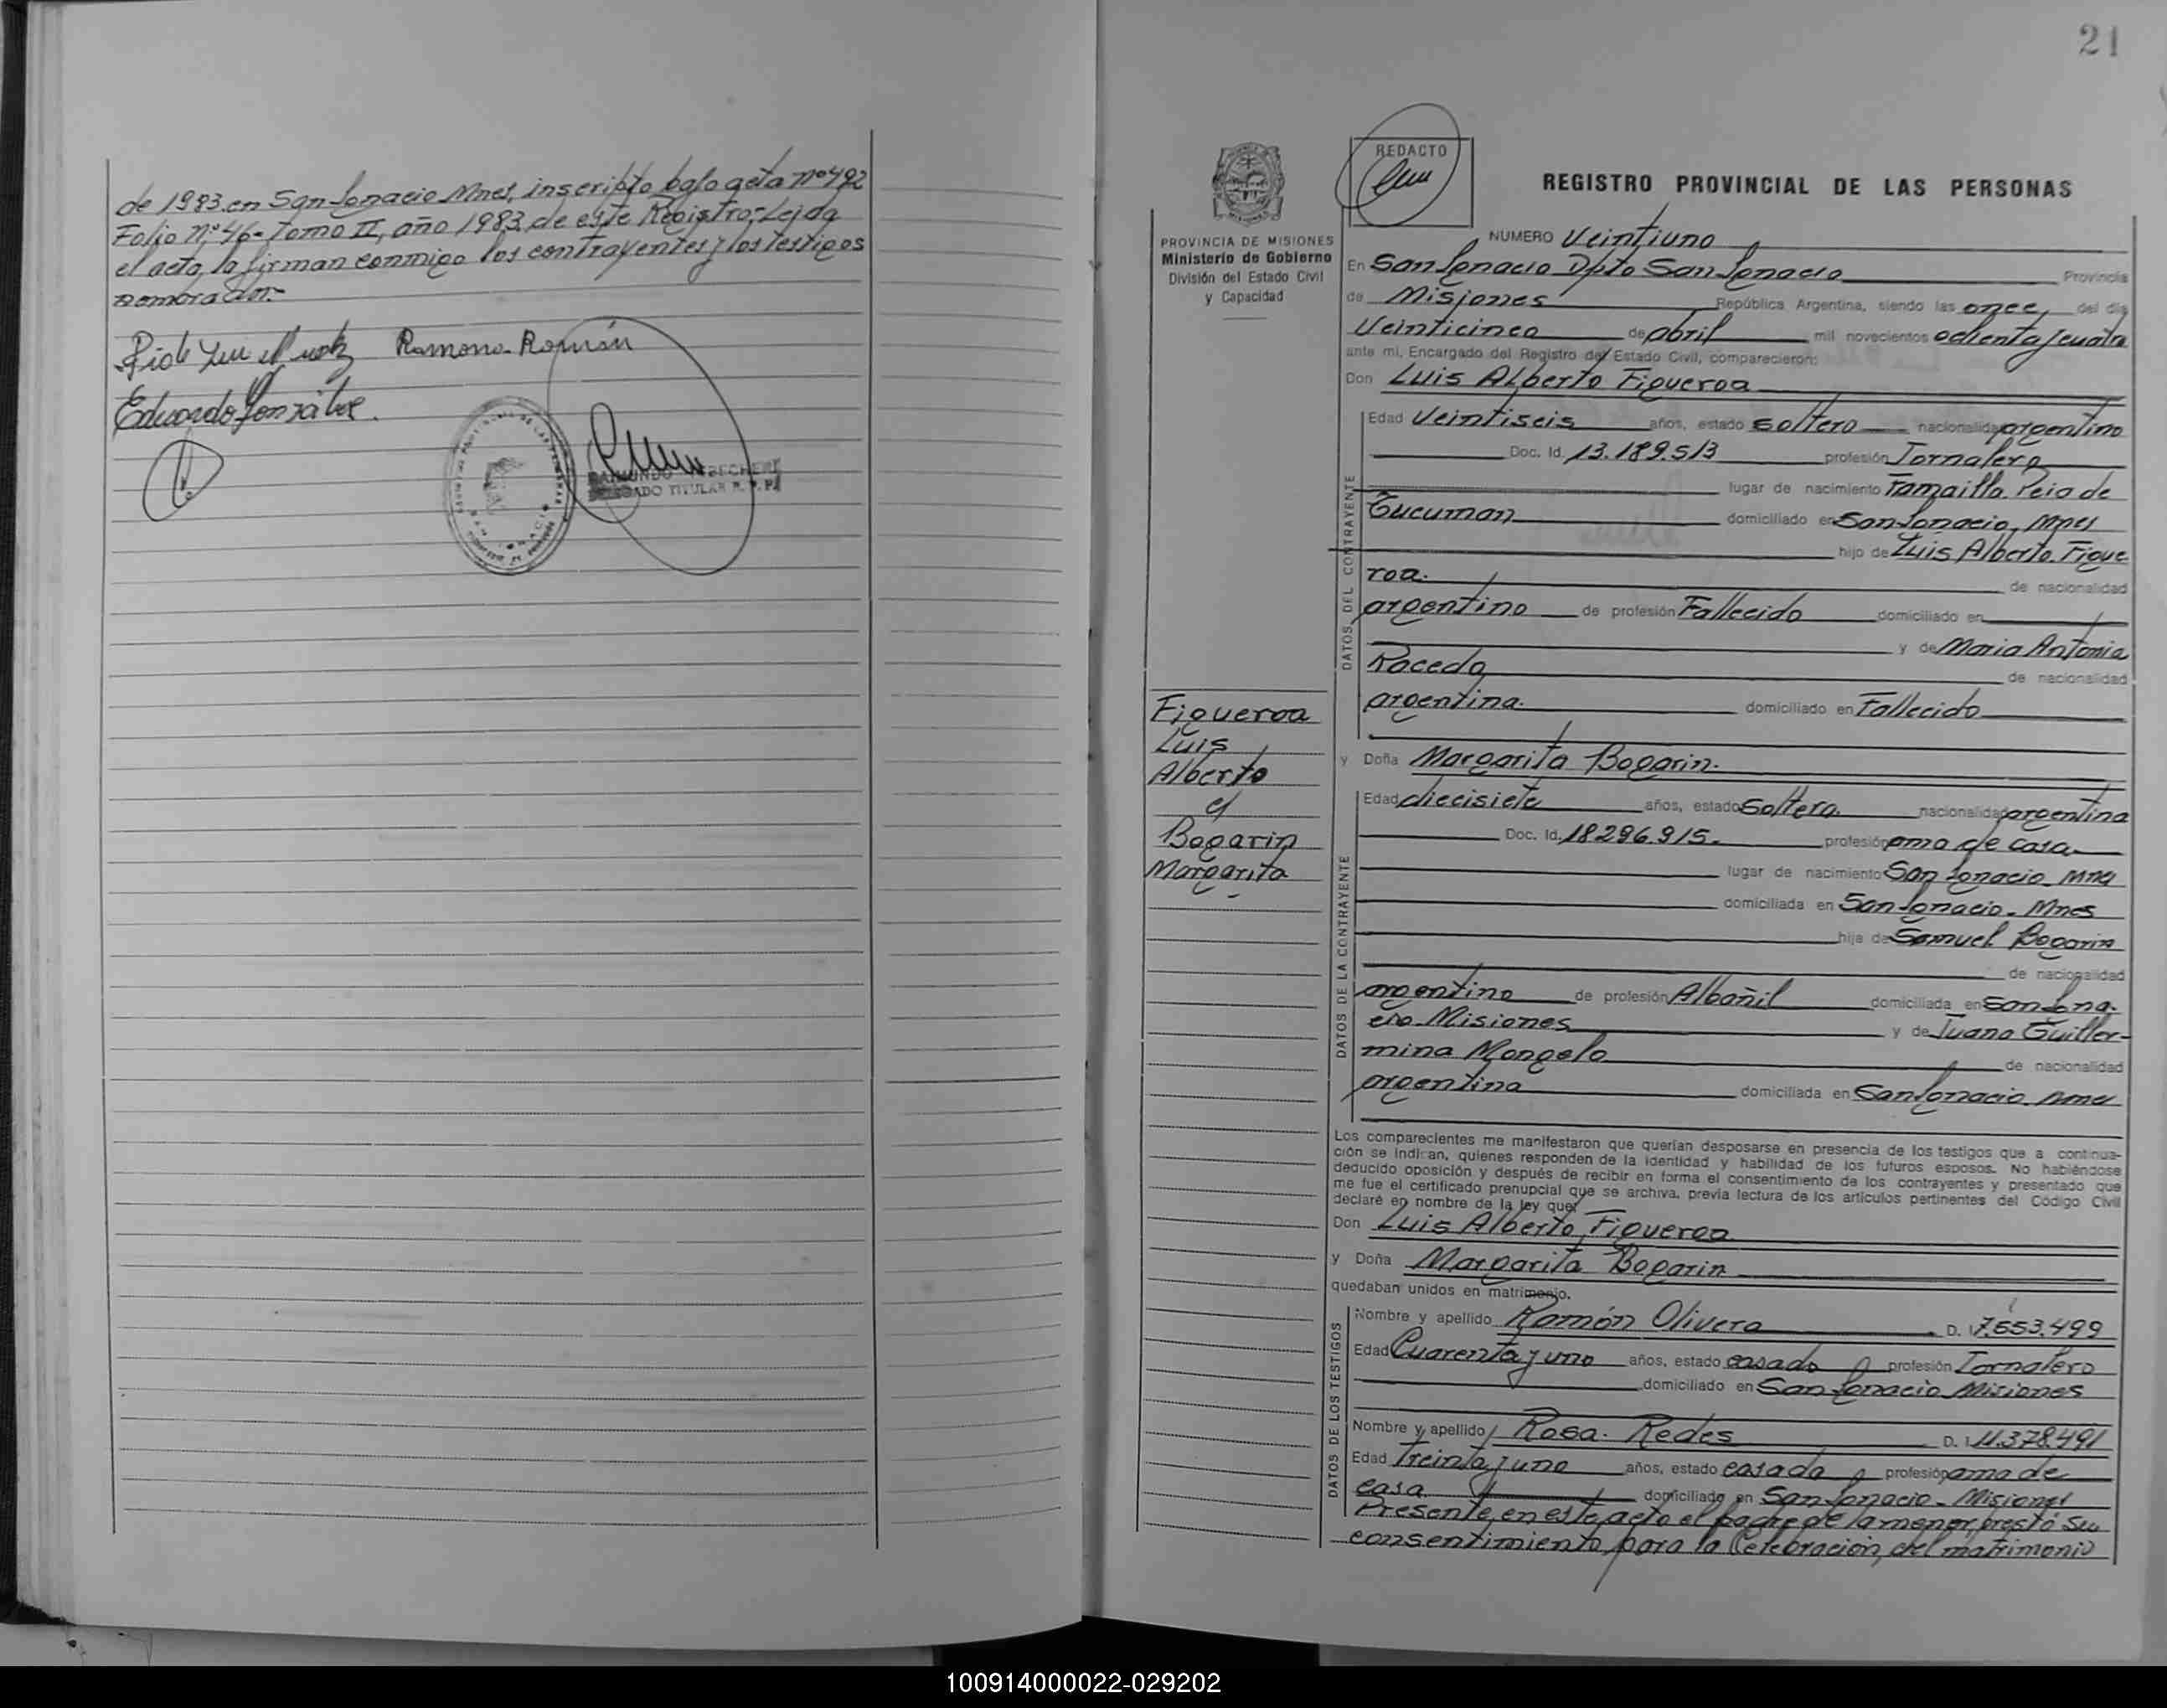 de 1983, en San Ignacio Mnes, inscripto bajo acta nº 492
Folio Nº 46- Tomo II, año 1983, de este Registro,- Leida
el acta, la firman conmigo los contrayentes y los testigos
nombrados.-
Ramona Román
Eduardo González
RAIMUNDO
DELEGADO TITULAR R. P. P.
21
REDACTO
REGISTRO PROVINCIAL DE LAS PERSONAS
PROVINCIA DE MISIONES
Ministerio de Gobierno
División del Estado Civil
y Capacidad
Figueroa
Luis
Alberto
c/
Bogarin
Margarita
NUMERO Veintiuno
En San Ignacio Dpto San Ignacio Provincia
de Misiones República Argentina, siendo las once del día
Veinticinco de abril mil novecientos ochenta y cuatro
ante mi, Encargado del Registro del Estado Civil, comparecieron:
Don Luis Alberto Figueroa
DATOS DEL CONTRAYENTE
Edad Veintiseis años, estado soltero nacionalidad argentino
Doc. Id. 13.189.513 profesión Jornalero
lugar de nacimiento Famailla. Pcia de
Tucuman domiciliado en San Ignacio, Mnes
hijo de Luis Alberto Figue
roa. de nacionalidad
argentino de profesión Fallecido domiciliado en
y de Maria Antonia
Racedo de nacionalidad
argentina. domiciliado en Fallecido
y Doña Margarita Bogarin.
DATOS DE LA CONTRAYENTE
Edad diecisiete años, estado soltera. nacionalidad argentina
Doc. Id. 18.296.915. profesión ama de casa.
lugar de nacimiento San Ignacio Mnes
domiciliada en San Ignacio. Mnes
hija de Samuel Bogarin
de nacionalidad
argentino de profesión Albañil domiciliada en San Igna-
cio Misiones y de Juana Guiller-
mina Mongelo de nacionalidad
argentina domiciliada en San Ignacio Mnes
Los comparecientes me manifestaron que querían desposarse en presencia de los testigos que a continua-
ción se indican, quienes responden de la identidad y habilidad de los futuros esposos. No habiéndose
deducido oposición y después de recibir en forma el consentimiento de los contrayentes y presentado que
me fue el certificado prenupcial que se archiva, previa lectura de los artículos pertinentes del Código Civil
declaré en nombre de la ley que:
Don Luis Alberto Figueroa
y Doña Margarita Bogarin
quedaban unidos en matrimonio.
DATOS DE LOS TESTIGOS
Nombre y apellido Ramón Olivera D. I. 7.553.499
Edad Cuarenta y uno años, estado casado profesión Jornalero
domiciliado en San Ignacio Misiones
Nombre y apellido Rosa. Redes D. I. 11.378.491
Edad Treinta y uno años, estado casada profesión ama de
casa. domiciliado en San Ignacio - Misiones
Presente en este acto el padre de la menor, prestó su
consentimiento para la Celebración del matrimonio
100914000022-029202